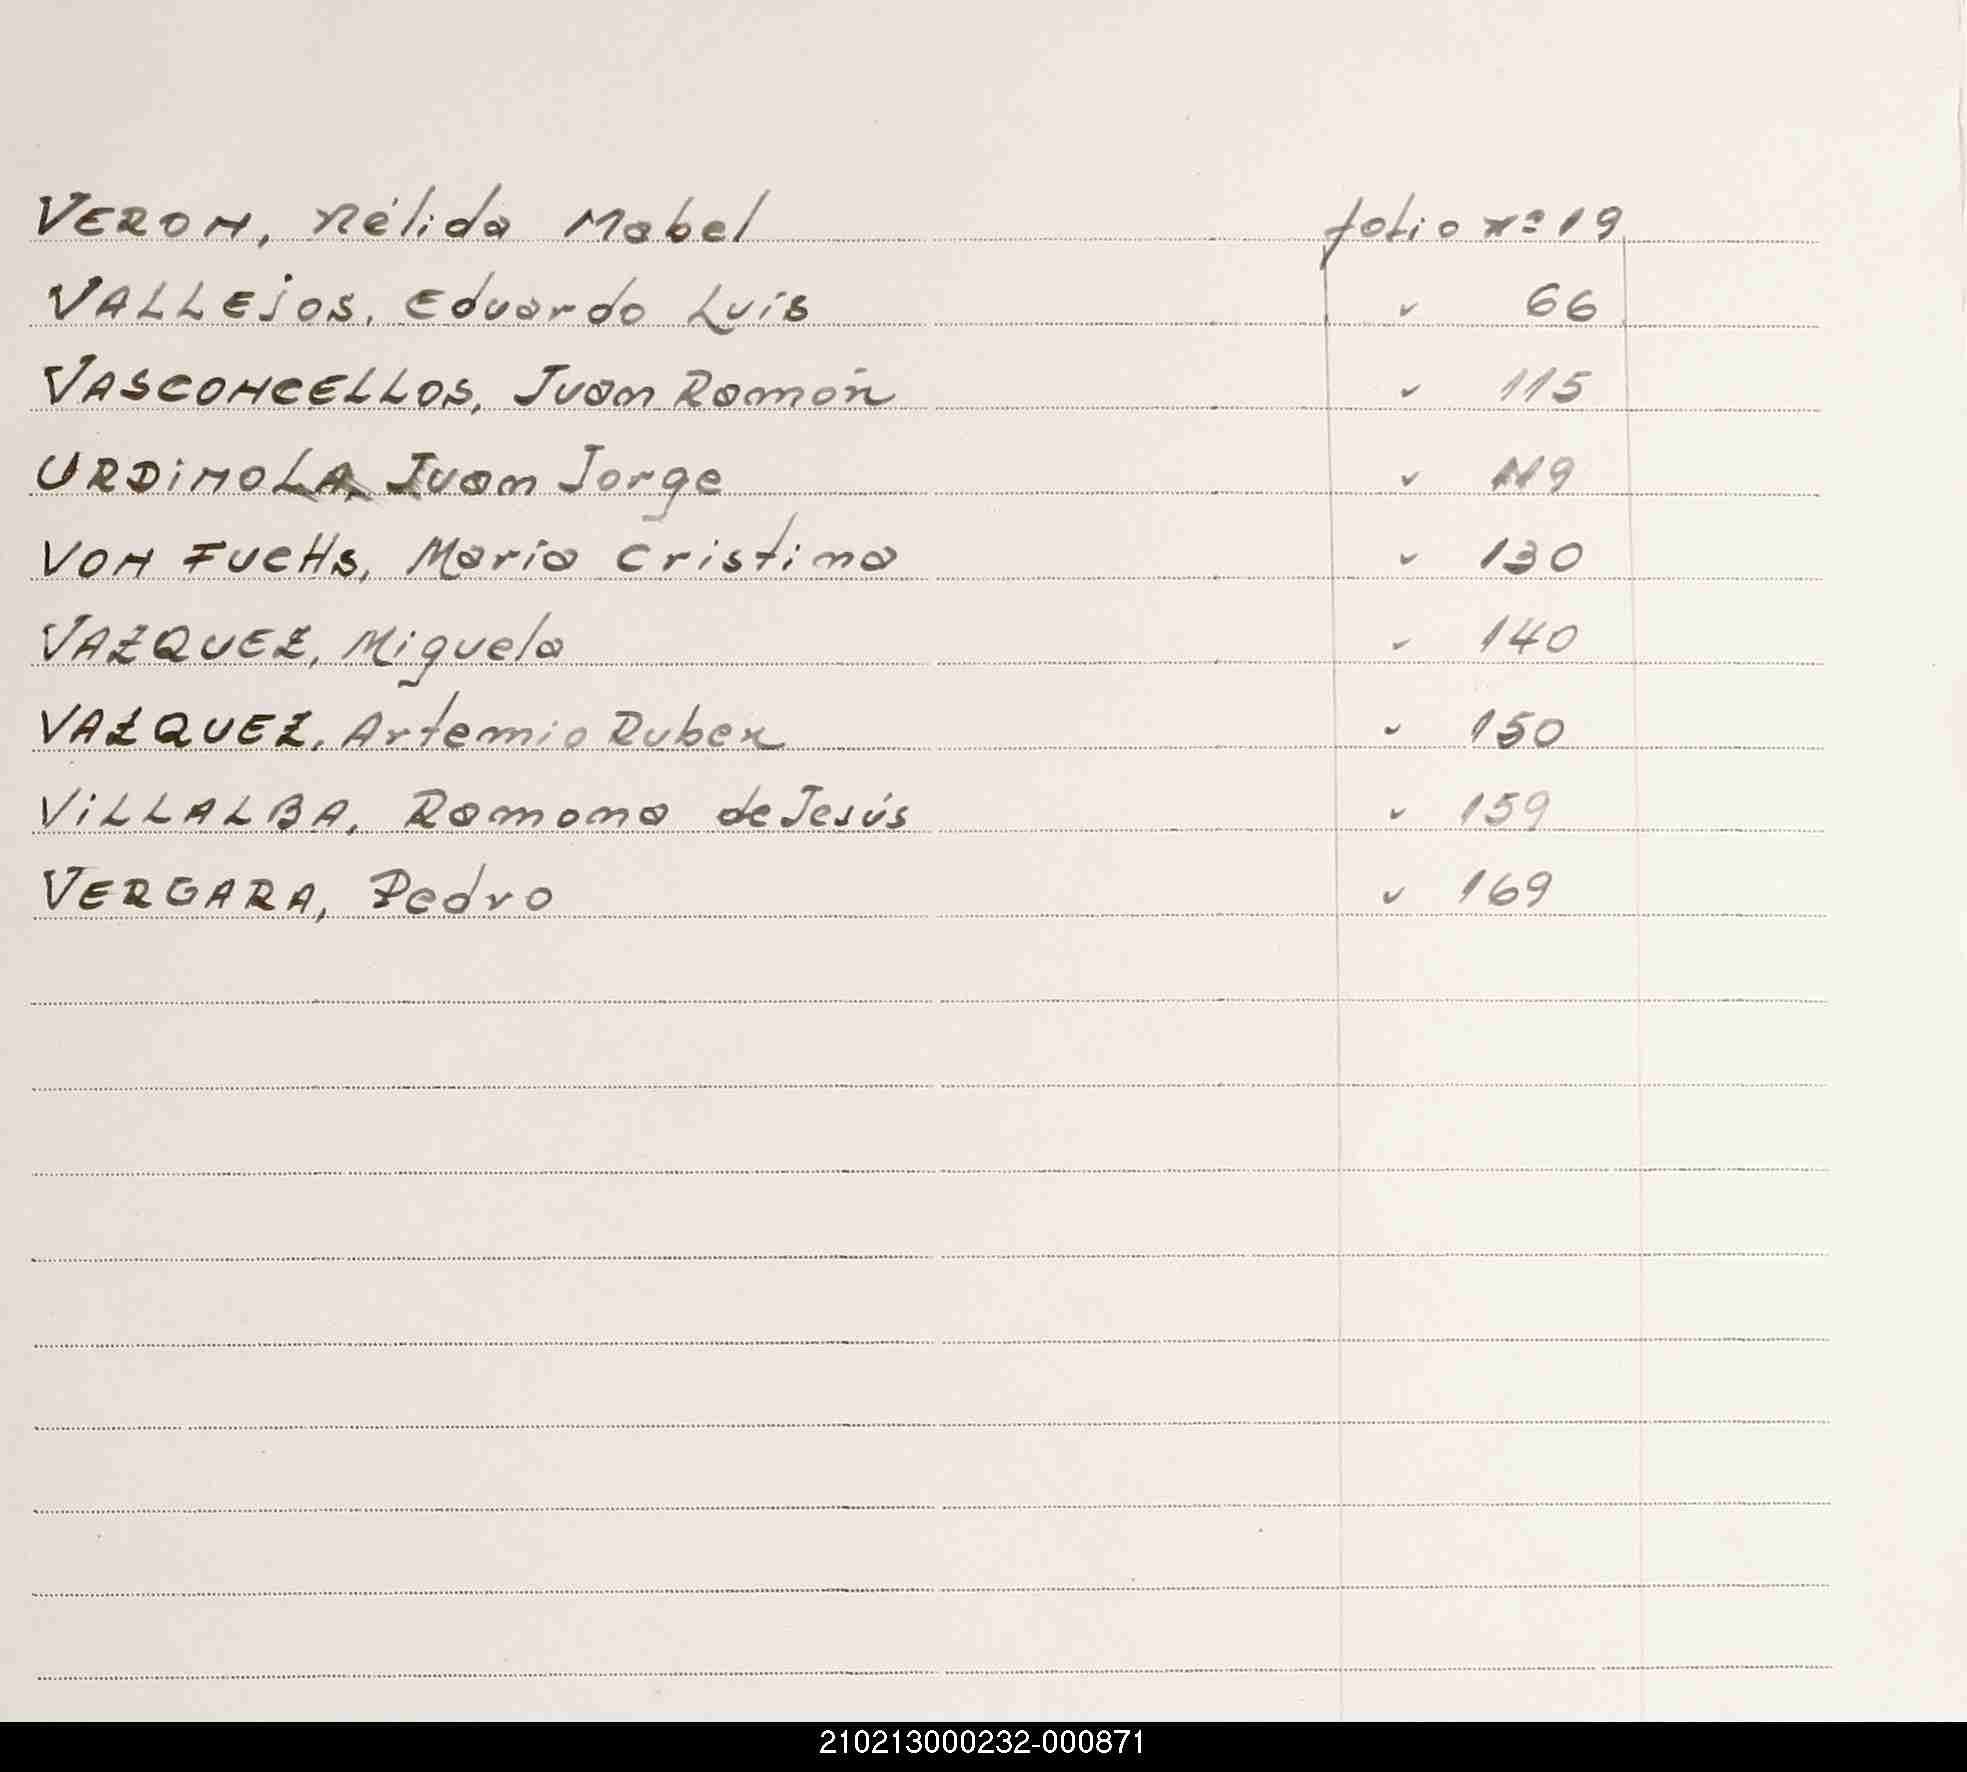 VERON, Nélida Mabel folio nº 19
VALLEjOS, Eduardo Luis " 66
VASCONCELLOS, Juan Ramón " 115
URDiNOLA, Juan Jorge " 119
VON FUCHS, María Cristina " 130
VAZQUEZ, Miguela " 140
VAZQUEZ, Artemio Ruben " 150
ViLLALBA, Ramona de Jesús " 159
VERGARA, Pedro " 169
210213000232-000871